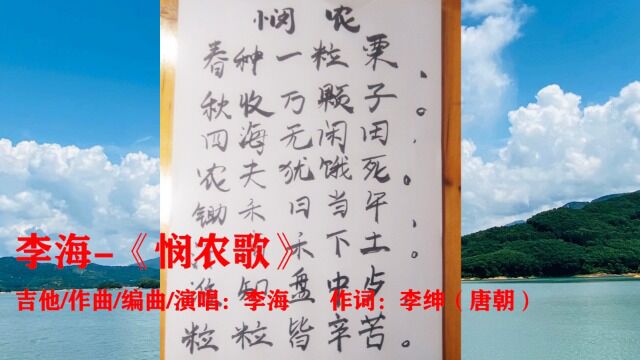 悯农
春种一粒粟、
秋收万颗子。
四海无闲田、
农夫犹饿死。
锄禾日当午、
禾下土。
李海-《悯农歌》
谁知盘中
吉他/作曲/编曲/演唱：李海 作词：李绅（唐朝）
粒粒皆辛苦。